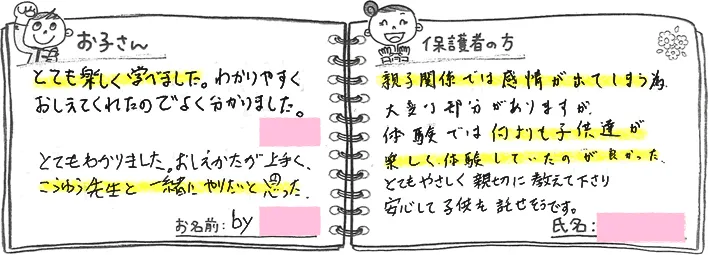 お子さん
とても楽しく学べました。わかりやすく
おしえてくれたのでよく分かりました。
とてもわかりました。おしえかたが上手く、
こうゆう先生と一緒にやりたいと思った。
お名前: by
保護者の方
親子関係では感情が出てしまう為、
大変な部分がありますが、
体験では何よりも子供達が
楽しく体験していたのが良かった。
とてもやさしく親切に教えて下さり
安心して子供を託せそうです。
氏名: